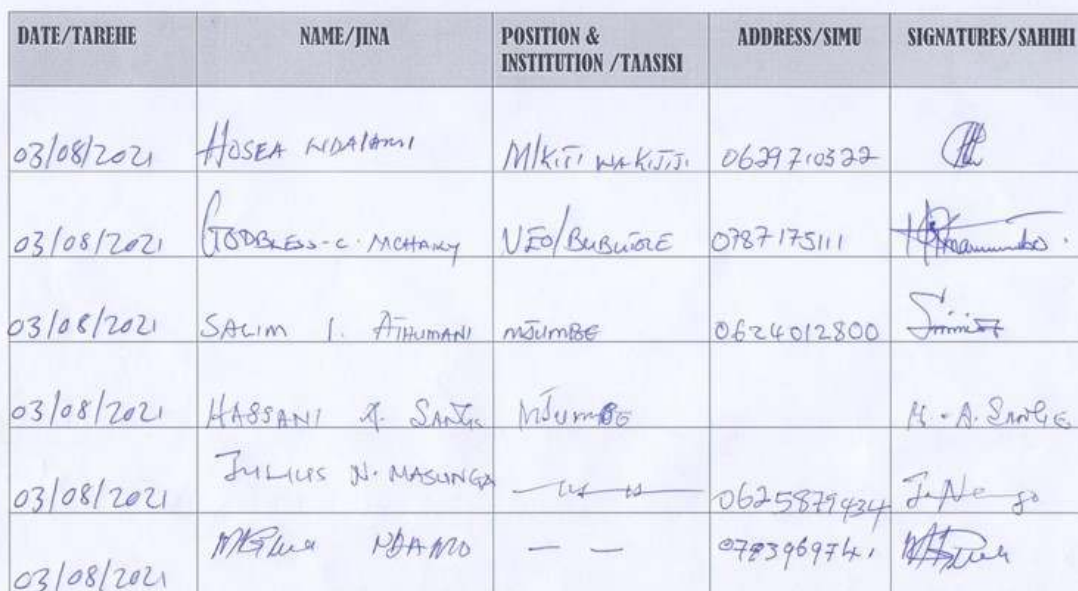 DATE/TAREHE NAME/JINA POSITION & INSTITUTION /TAASISI ADDRESS/SIMU SIGNATURES/SAHIHI
03/08/2021 HOSEA M/KITI WA KIJIJI 0629710322
03/08/2021 GODBLESS-C. VEO/ 0787175111
03/08/2021 SALIM I. ATHUMANI MJUMBE 0624012800
03/08/2021 HASSANI A. MJUMBE H.A.
03/08/2021 JULIUS N. MASUNGA 0625879434
03/08/2021 NDARO — —